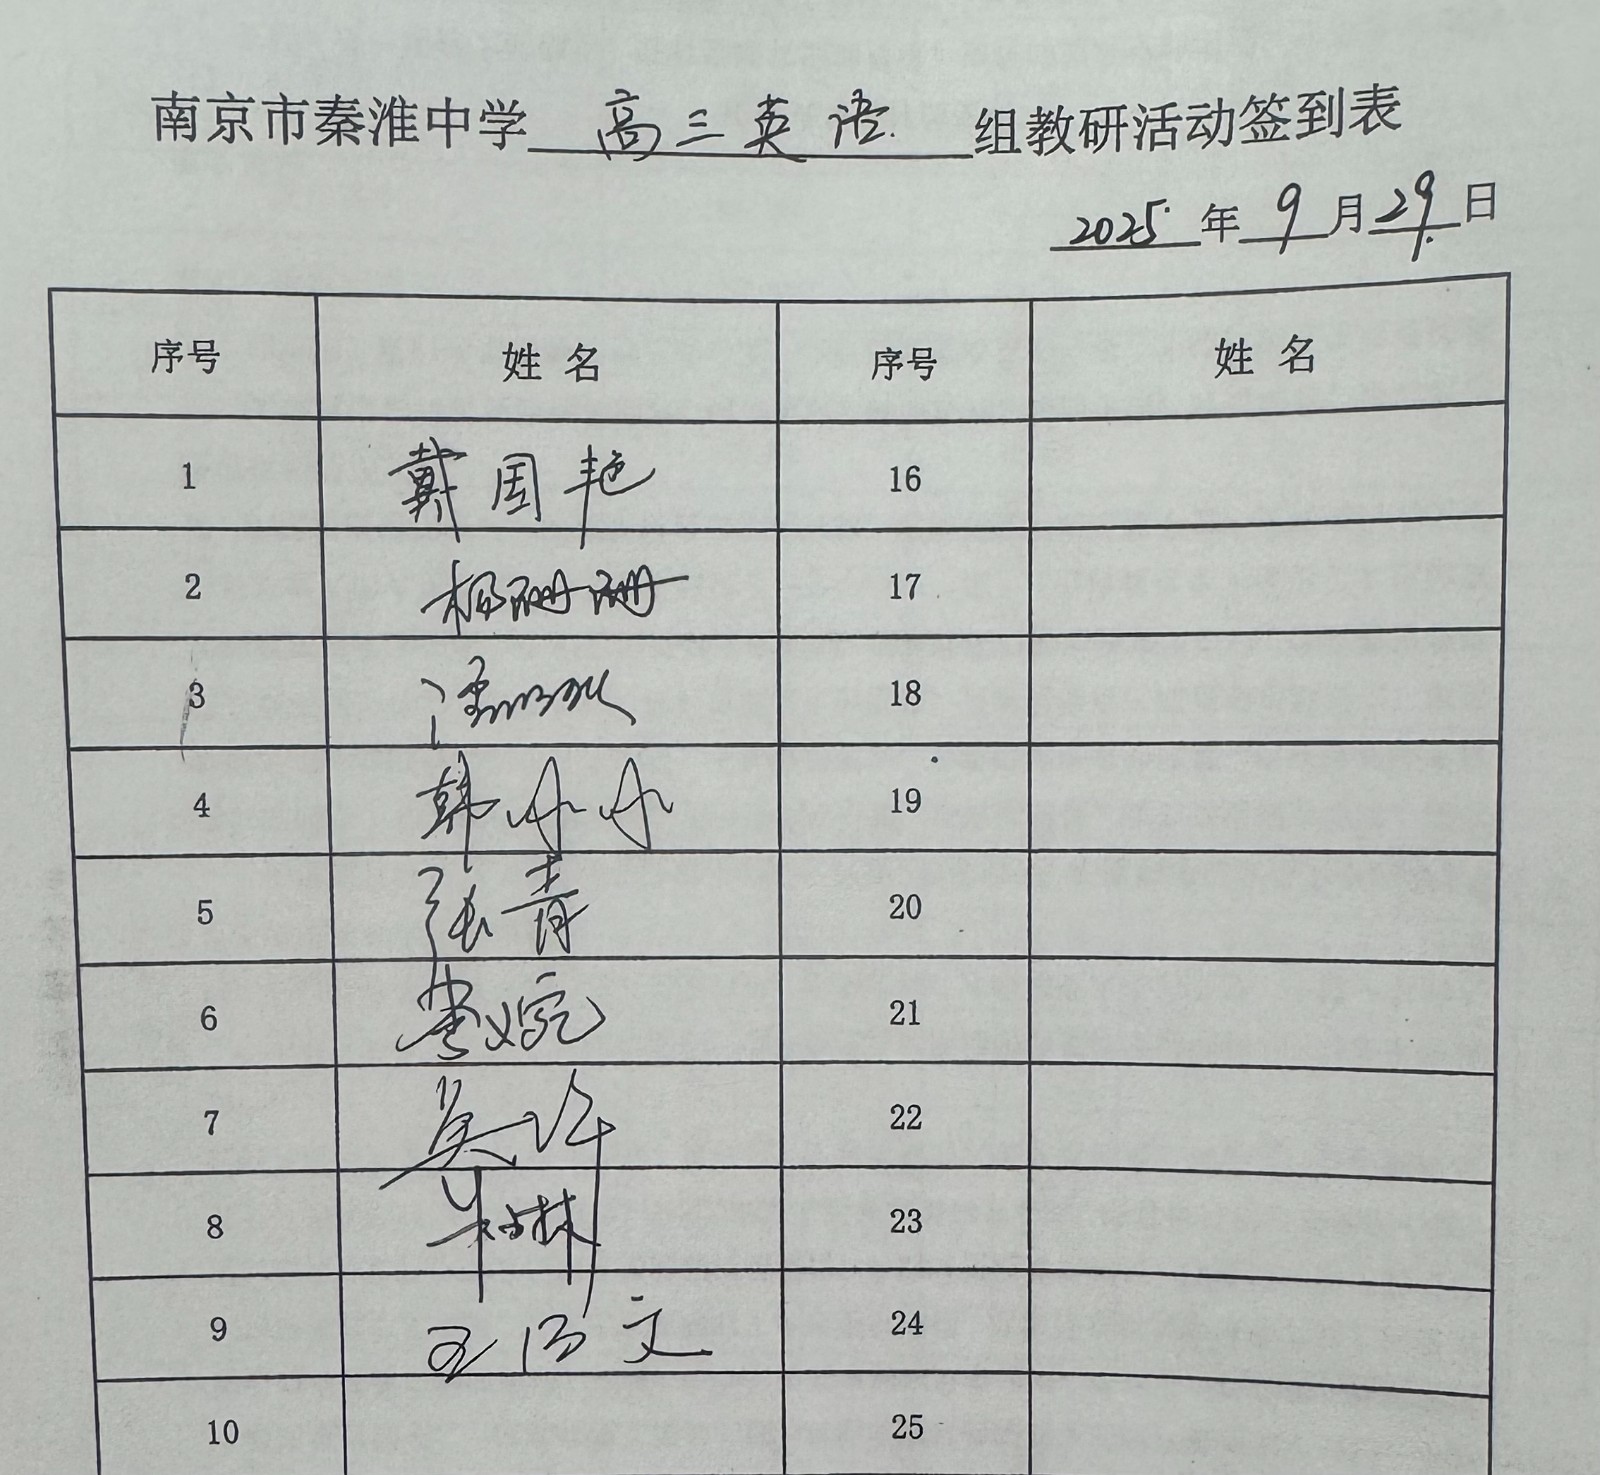 南京市秦淮中学 高三英语 组教研活动签到表
2025 年 9 月 29 日
序号 姓名 序号 姓名
1 戴国艳 16
2 杨珊珊 17
3 18
4 韩 19
5 张青 20
6 婉 21
7 吴 22
8 朱琳 23
9 王 文 24
10 25